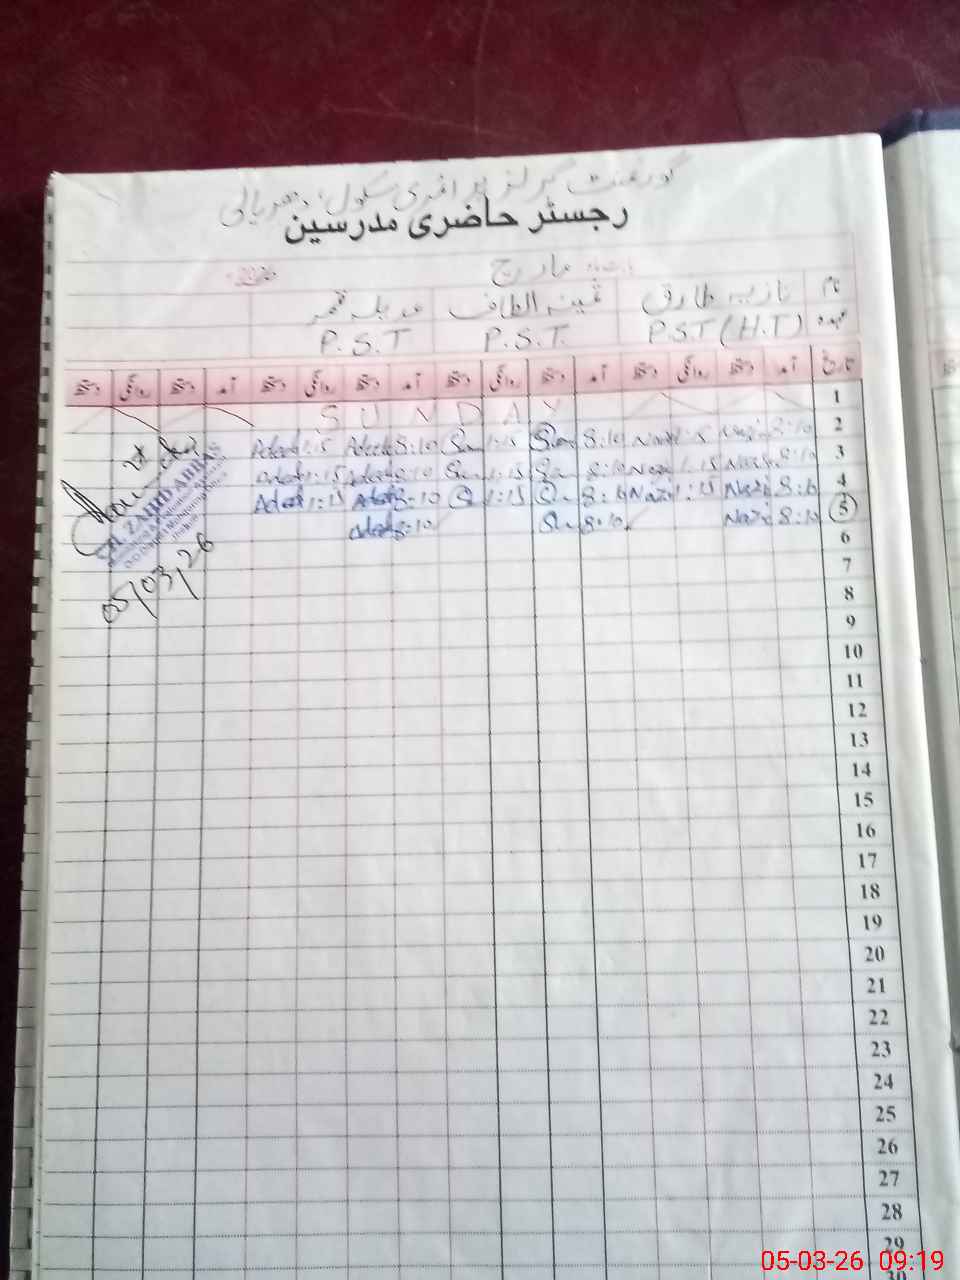 گورنمنٹ گرلز پرائمری سکول، دھریالی
رجسٹر حاضری مدرسین
بابت ماہ مارچ 2026
نام نازیہ طارق ثمینہ الطاف عدیلہ قمر
عہدہ P.S.T (H.T) P.S.T. P.S.T
تاریخ آمد دستخط روانگی دستخط آمد دستخط روانگی دستخط آمد دستخط روانگی دستخط آمد دستخط روانگی دستخط
1 SUNDAY
2 8:10 Nazi 1:15 Nazi 8:10 Sam 1:15 Sam 8:10 Adeela 1:15 Adeela
3 8:10 Nazi 1:15 Nazi 8:10 1:15 8:10 Adeela 1:15 Adeela
4 8:10 Nazi 1:15 Nazi 8:10 1:15 8:10 Adeela 1:15 Adeela
5 8:10 Nazi 8:10 8:10 Adeela
ZAHID ABBAS
05/03/26
6
7
8
9
10
11
12
13
14
15
16
17
18
19
20
21
22
23
24
25
26
27
28
29
30
05-03-26 09:19